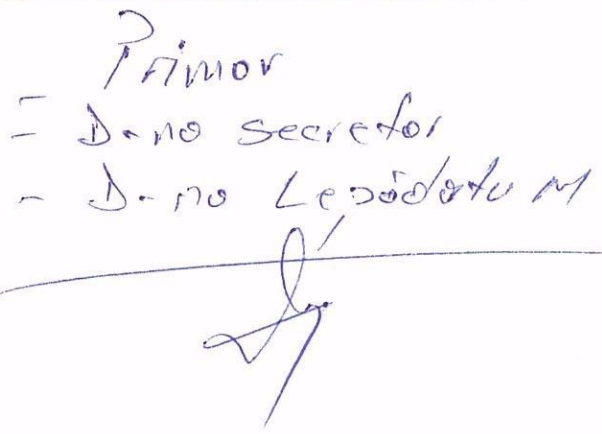 Primar
= D-na secretar
- D-na Lepădatu M